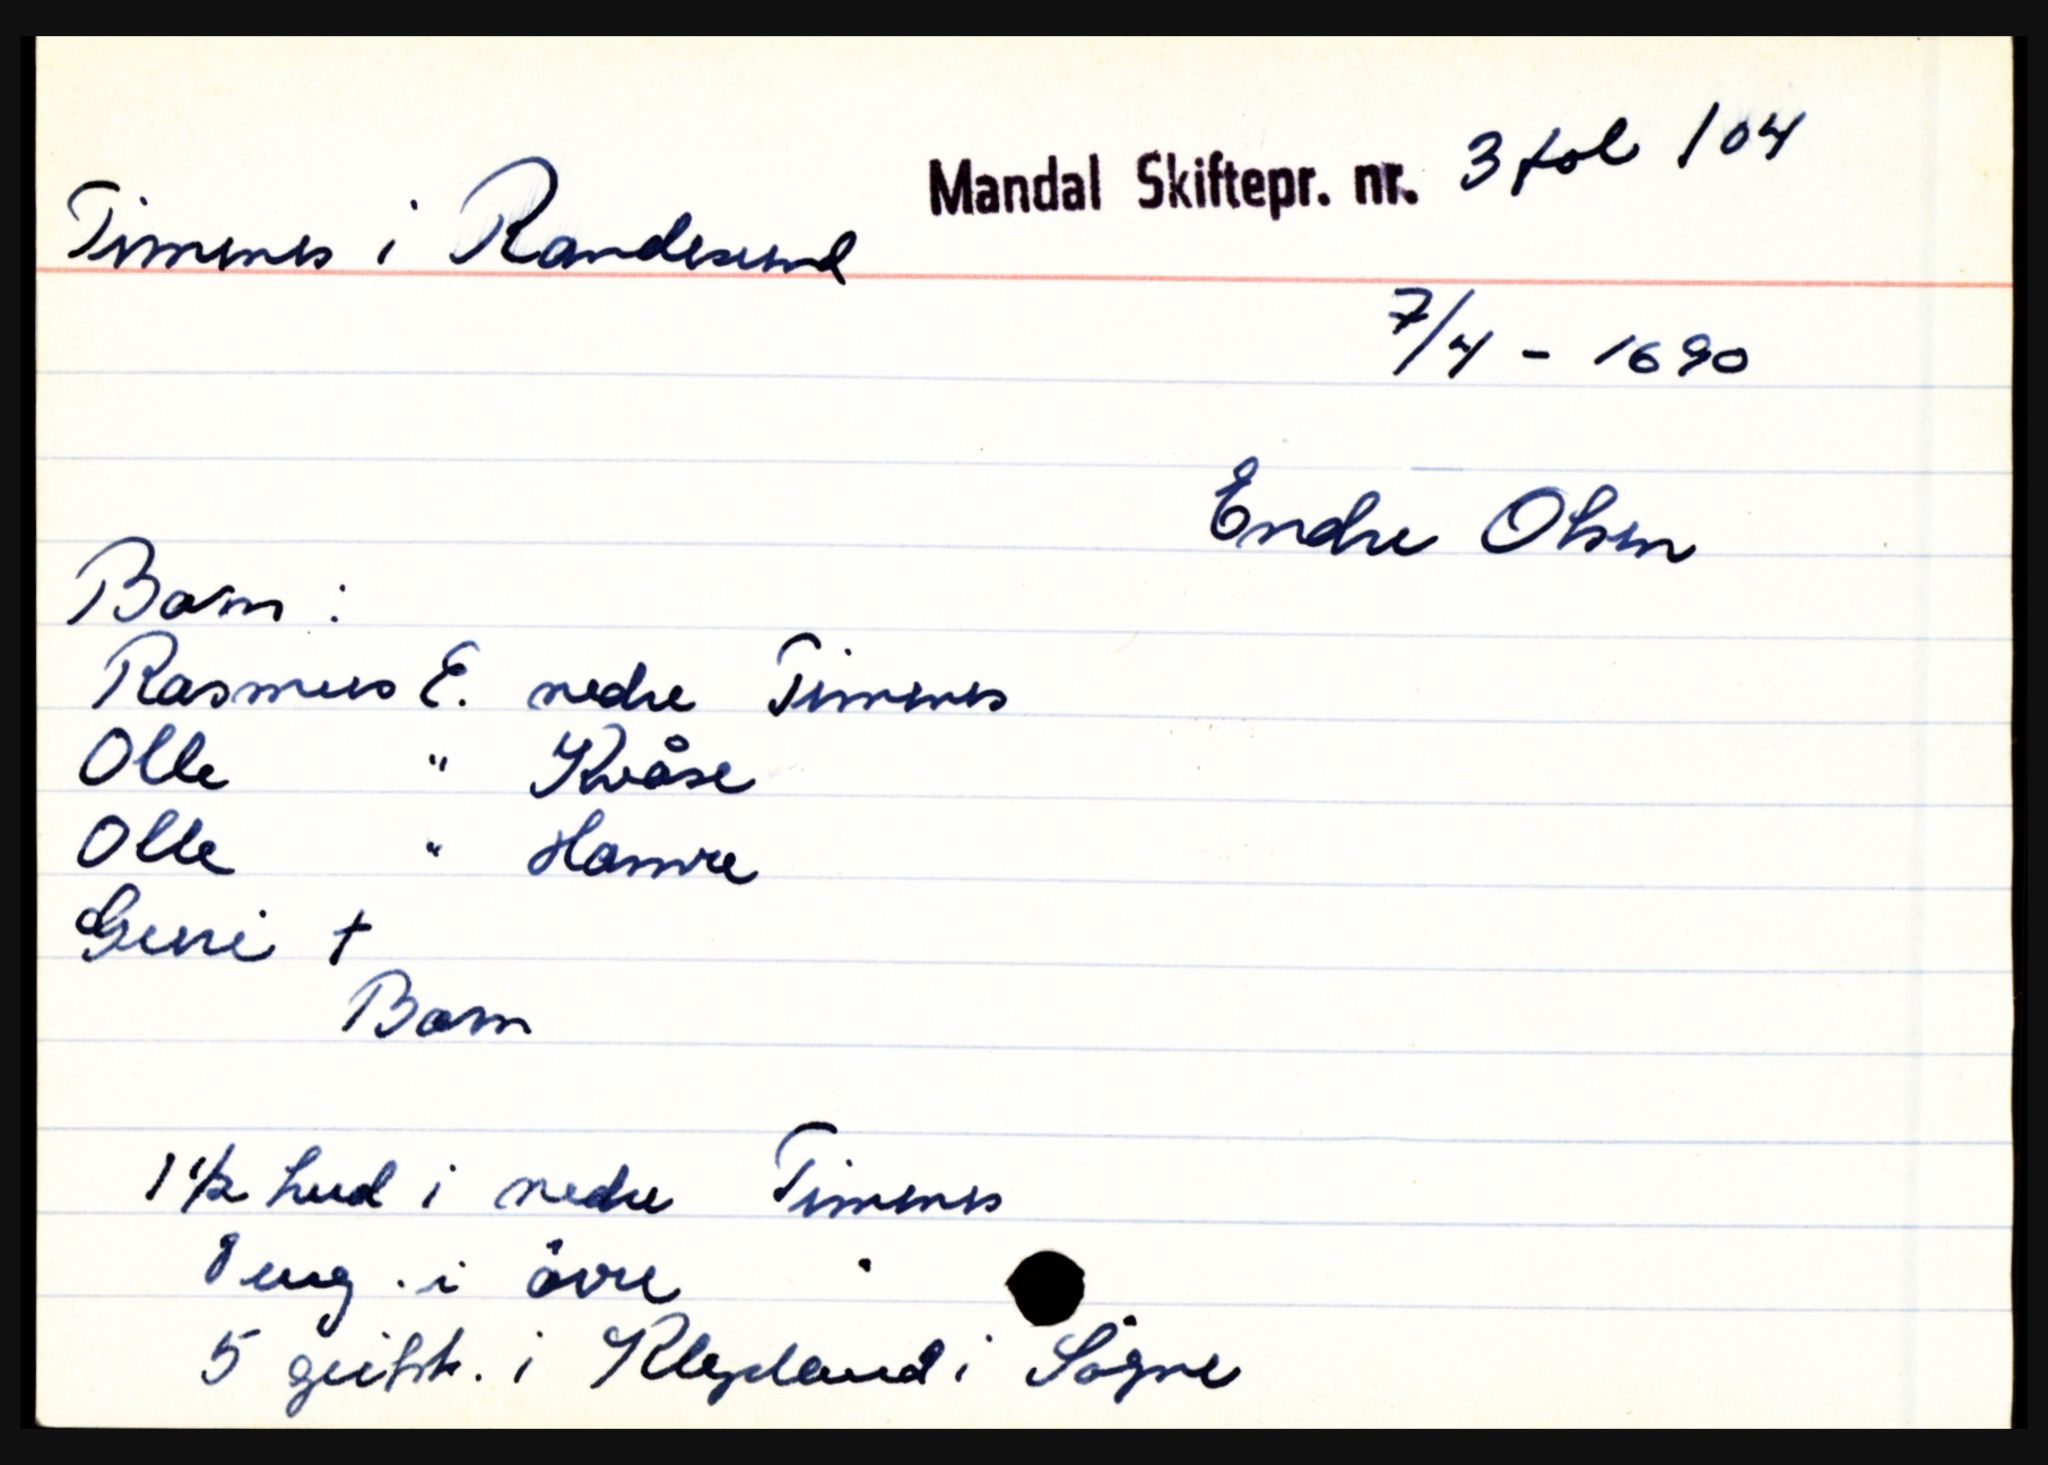 Mandal Skiftepr. nr. 3 fol 104
Timenes i Randesund
7/4 - 1690
Endre Olsen
Barn :
Rasmus E. nedre Timenes
Olle " Kvåse
Olle " Hamre
Guri †
Barn
1 1/2 hud i nedre Timenes
8 eng. i övre "
5 geitsk. i Klepland i Sögne